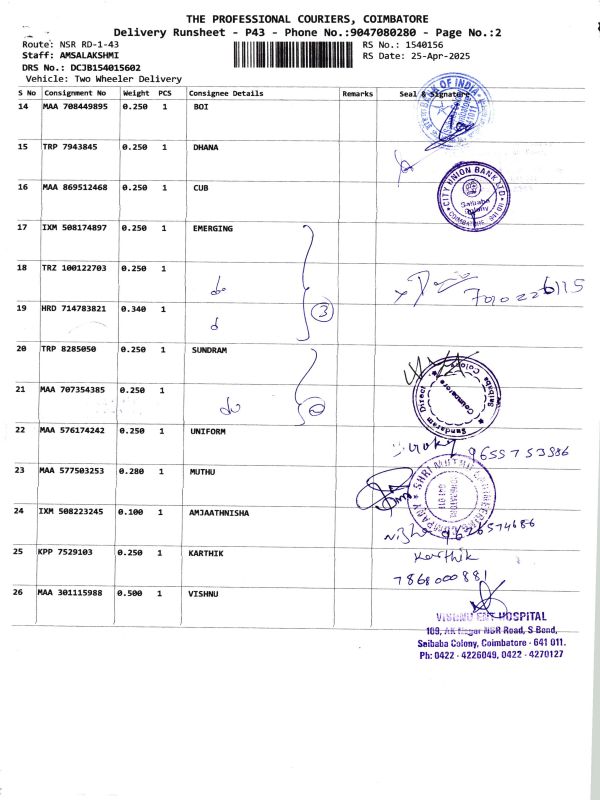 THE PROFESSIONAL COURIERS, COIMBATORE
Delivery Runsheet - P43 - Phone No.:9047080280 - Page No.:2
Route: NSR RD-1-43 RS No.: 1540156
Staff: AMSALAKSHMI RS Date: 25-Apr-2025
DRS No.: DCJB154015602
Vehicle: Two Wheeler Delivery
S No Consignment No Weight PCS Consignee Details Remarks Seal & Signature
14 MAA 708449895 0.250 1 BOI
BANK OF INDIA
15 TRP 7943845 0.250 1 DHANA
16 MAA 869512468 0.250 1 CUB
CITY UNION BANK LTD
Saibaba
Colony
17 IXM 508174897 0.250 1 EMERGING
18 TRZ 100122703 0.250 1
do
7010226115
19 HRD 714783821 0.340 1
3
20 TRP 8285050 0.250 1 SUNDRAM
21 MAA 707354385 0.250 1
do
Sundaram Direct
Coimbatore
Saibaba Colony
22 MAA 576174242 0.250 1 UNIFORM
9655753886
23 MAA 577503253 0.280 1 MUTHU
SHRI MUTHU
24 IXM 508223245 0.100 1 AMJAATHNISHA
9626574686
25 KPP 7529103 0.250 1 KARTHIK
Karthik
7868000881
26 MAA 301115988 0.500 1 VISHNU
VISHNU ENT HOSPITAL
109, AK Nagar NSR Road, S Bend,
Saibaba Colony, Coimbatore - 641 011.
Ph: 0422 - 4226049, 0422 - 4270127